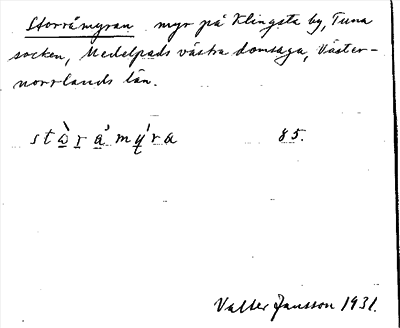 Storråmyran myr på Klingsta by, Tuna
socken, Medelpads västra domsaga, Väster-
norrlands län.
stὼra'mý̨ra 85.
Valter Jansson 1931.